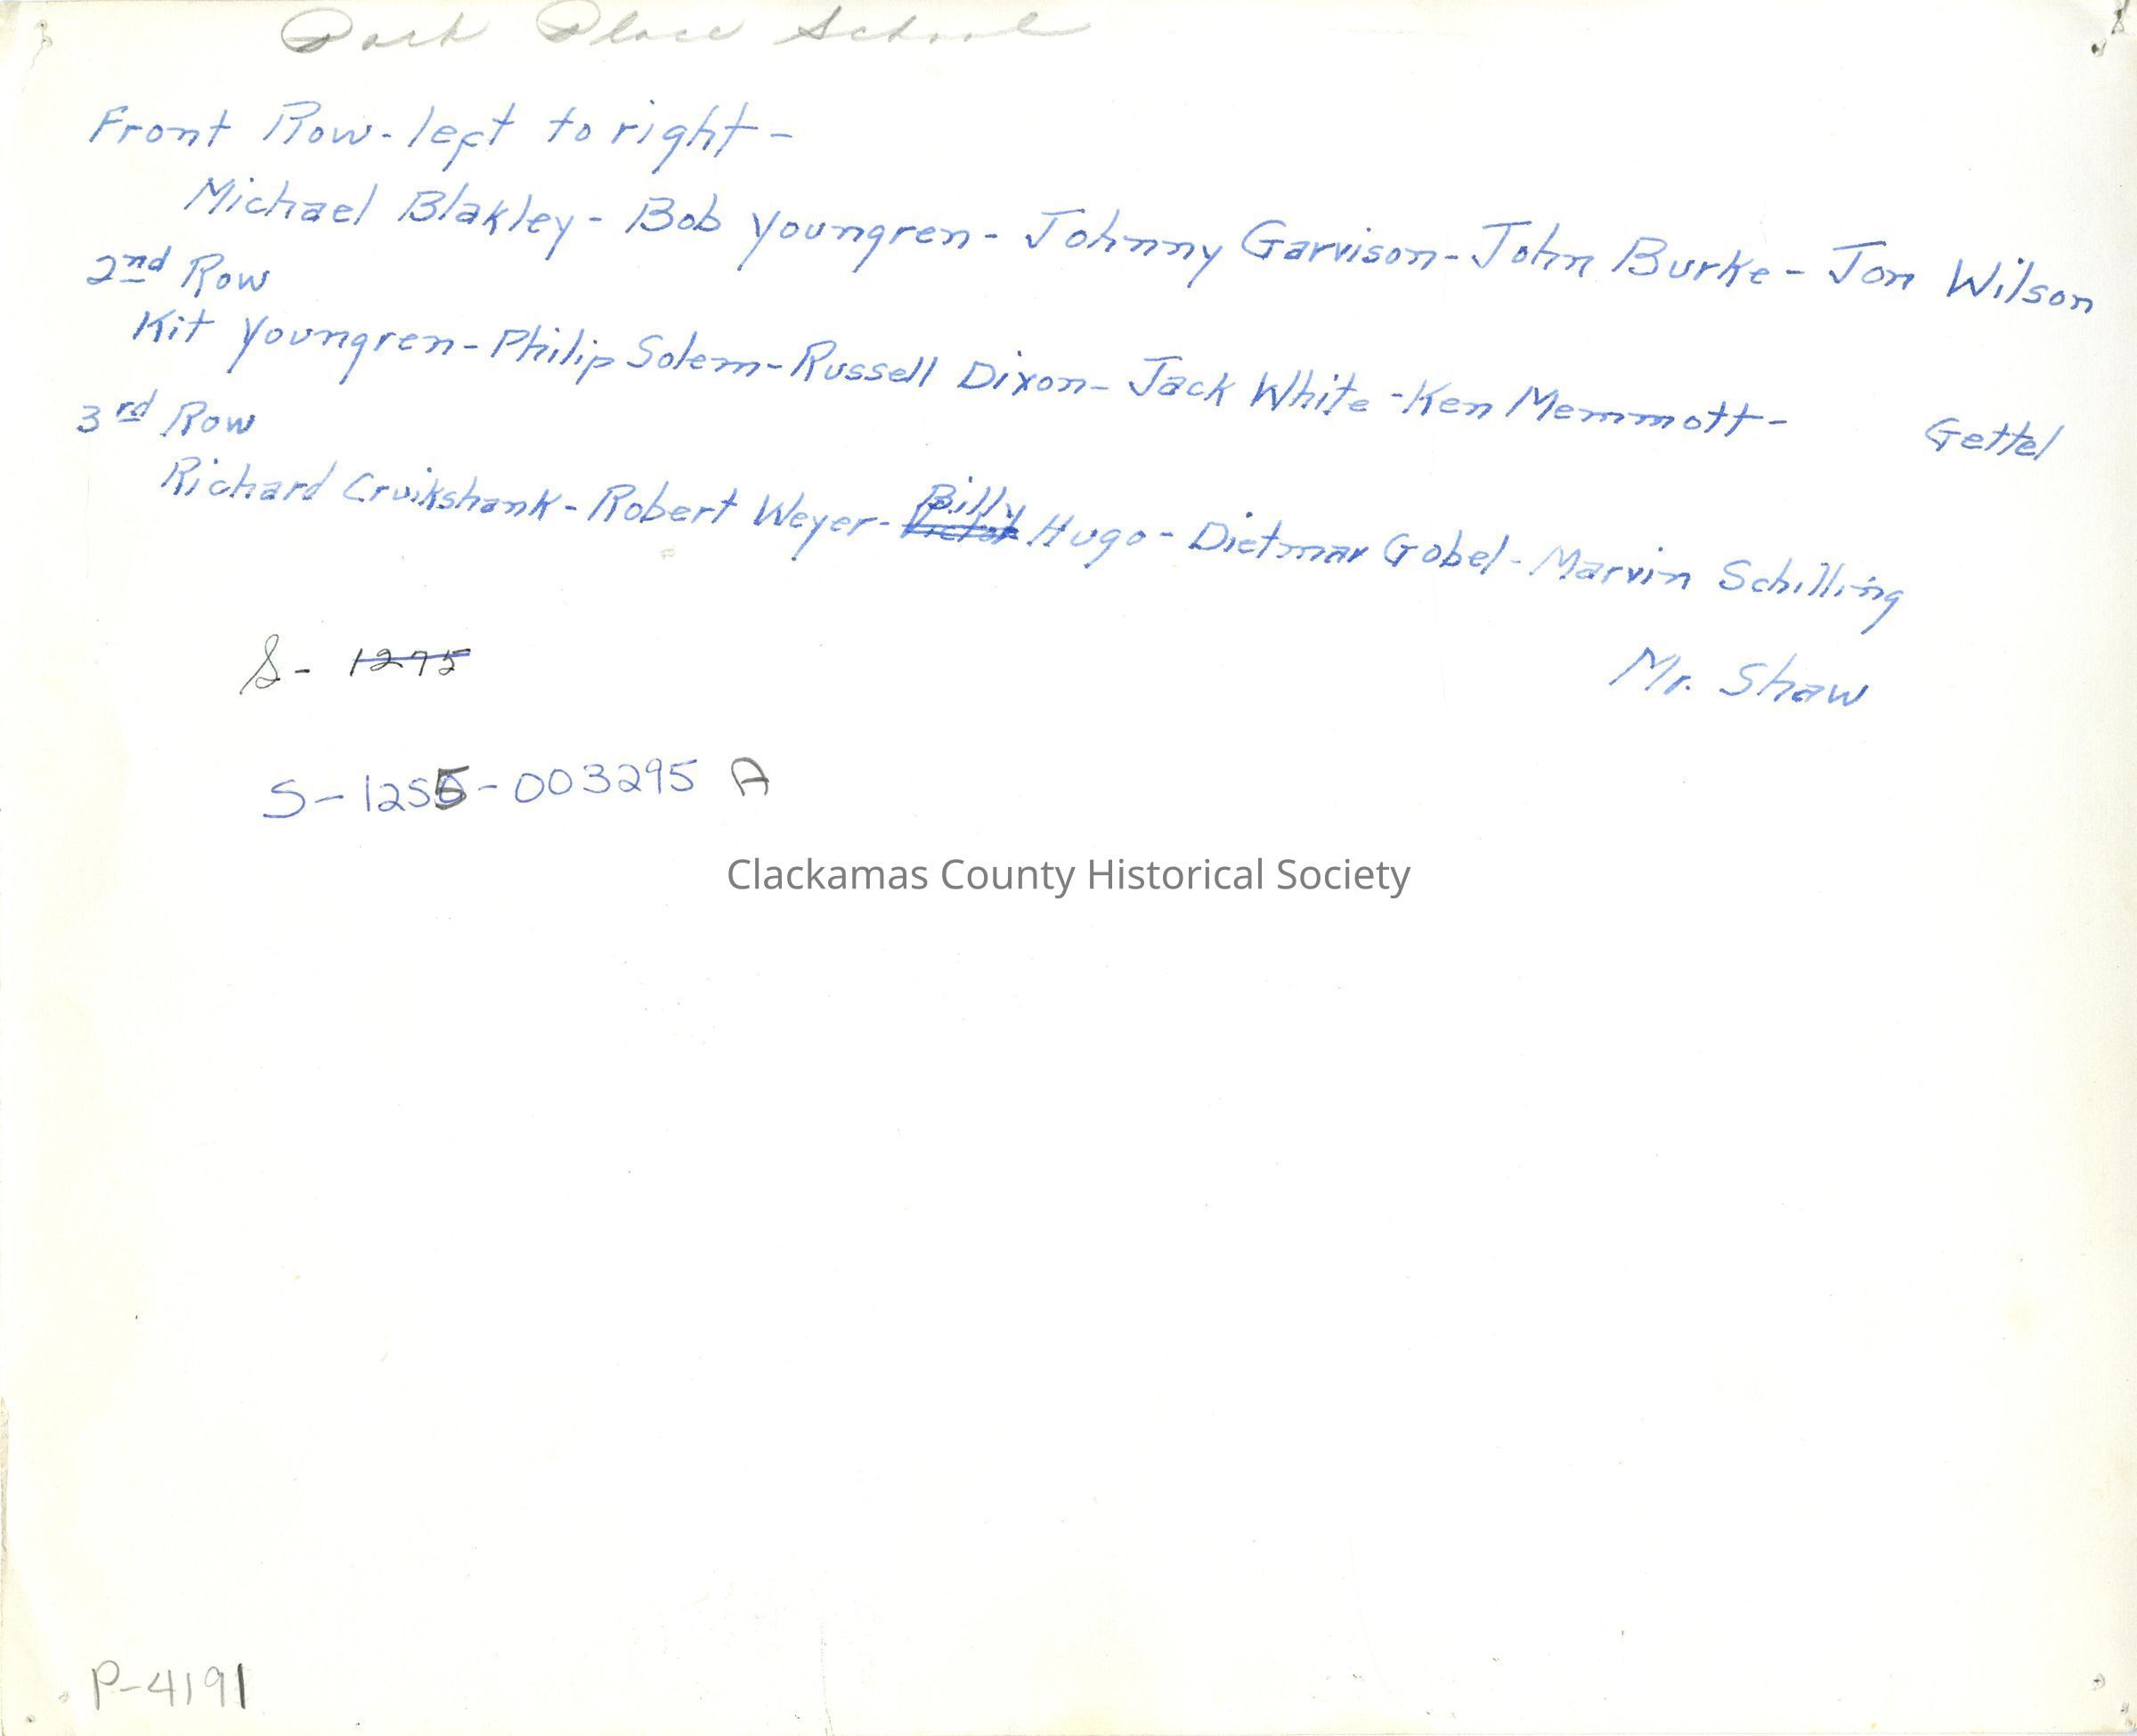 Park Place School
Front Row - left to right -
Michael Blakley - Bob Youngren - Johnny Garvison - John Burke - Jon Wilson
2nd Row
Kit Youngren - Philip Solem - Russell Dixon - Jack White - Ken Memmott - Gettel
3rd Row
Billy
Richard Cruikshank - Robert Weyer - Victor Hugo - Dietmar Gobel - Marvin Schilling
Mr. Shaw
S - 1275
S - 1255 - 003295 A
Clackamas County Historical Society
P-4191